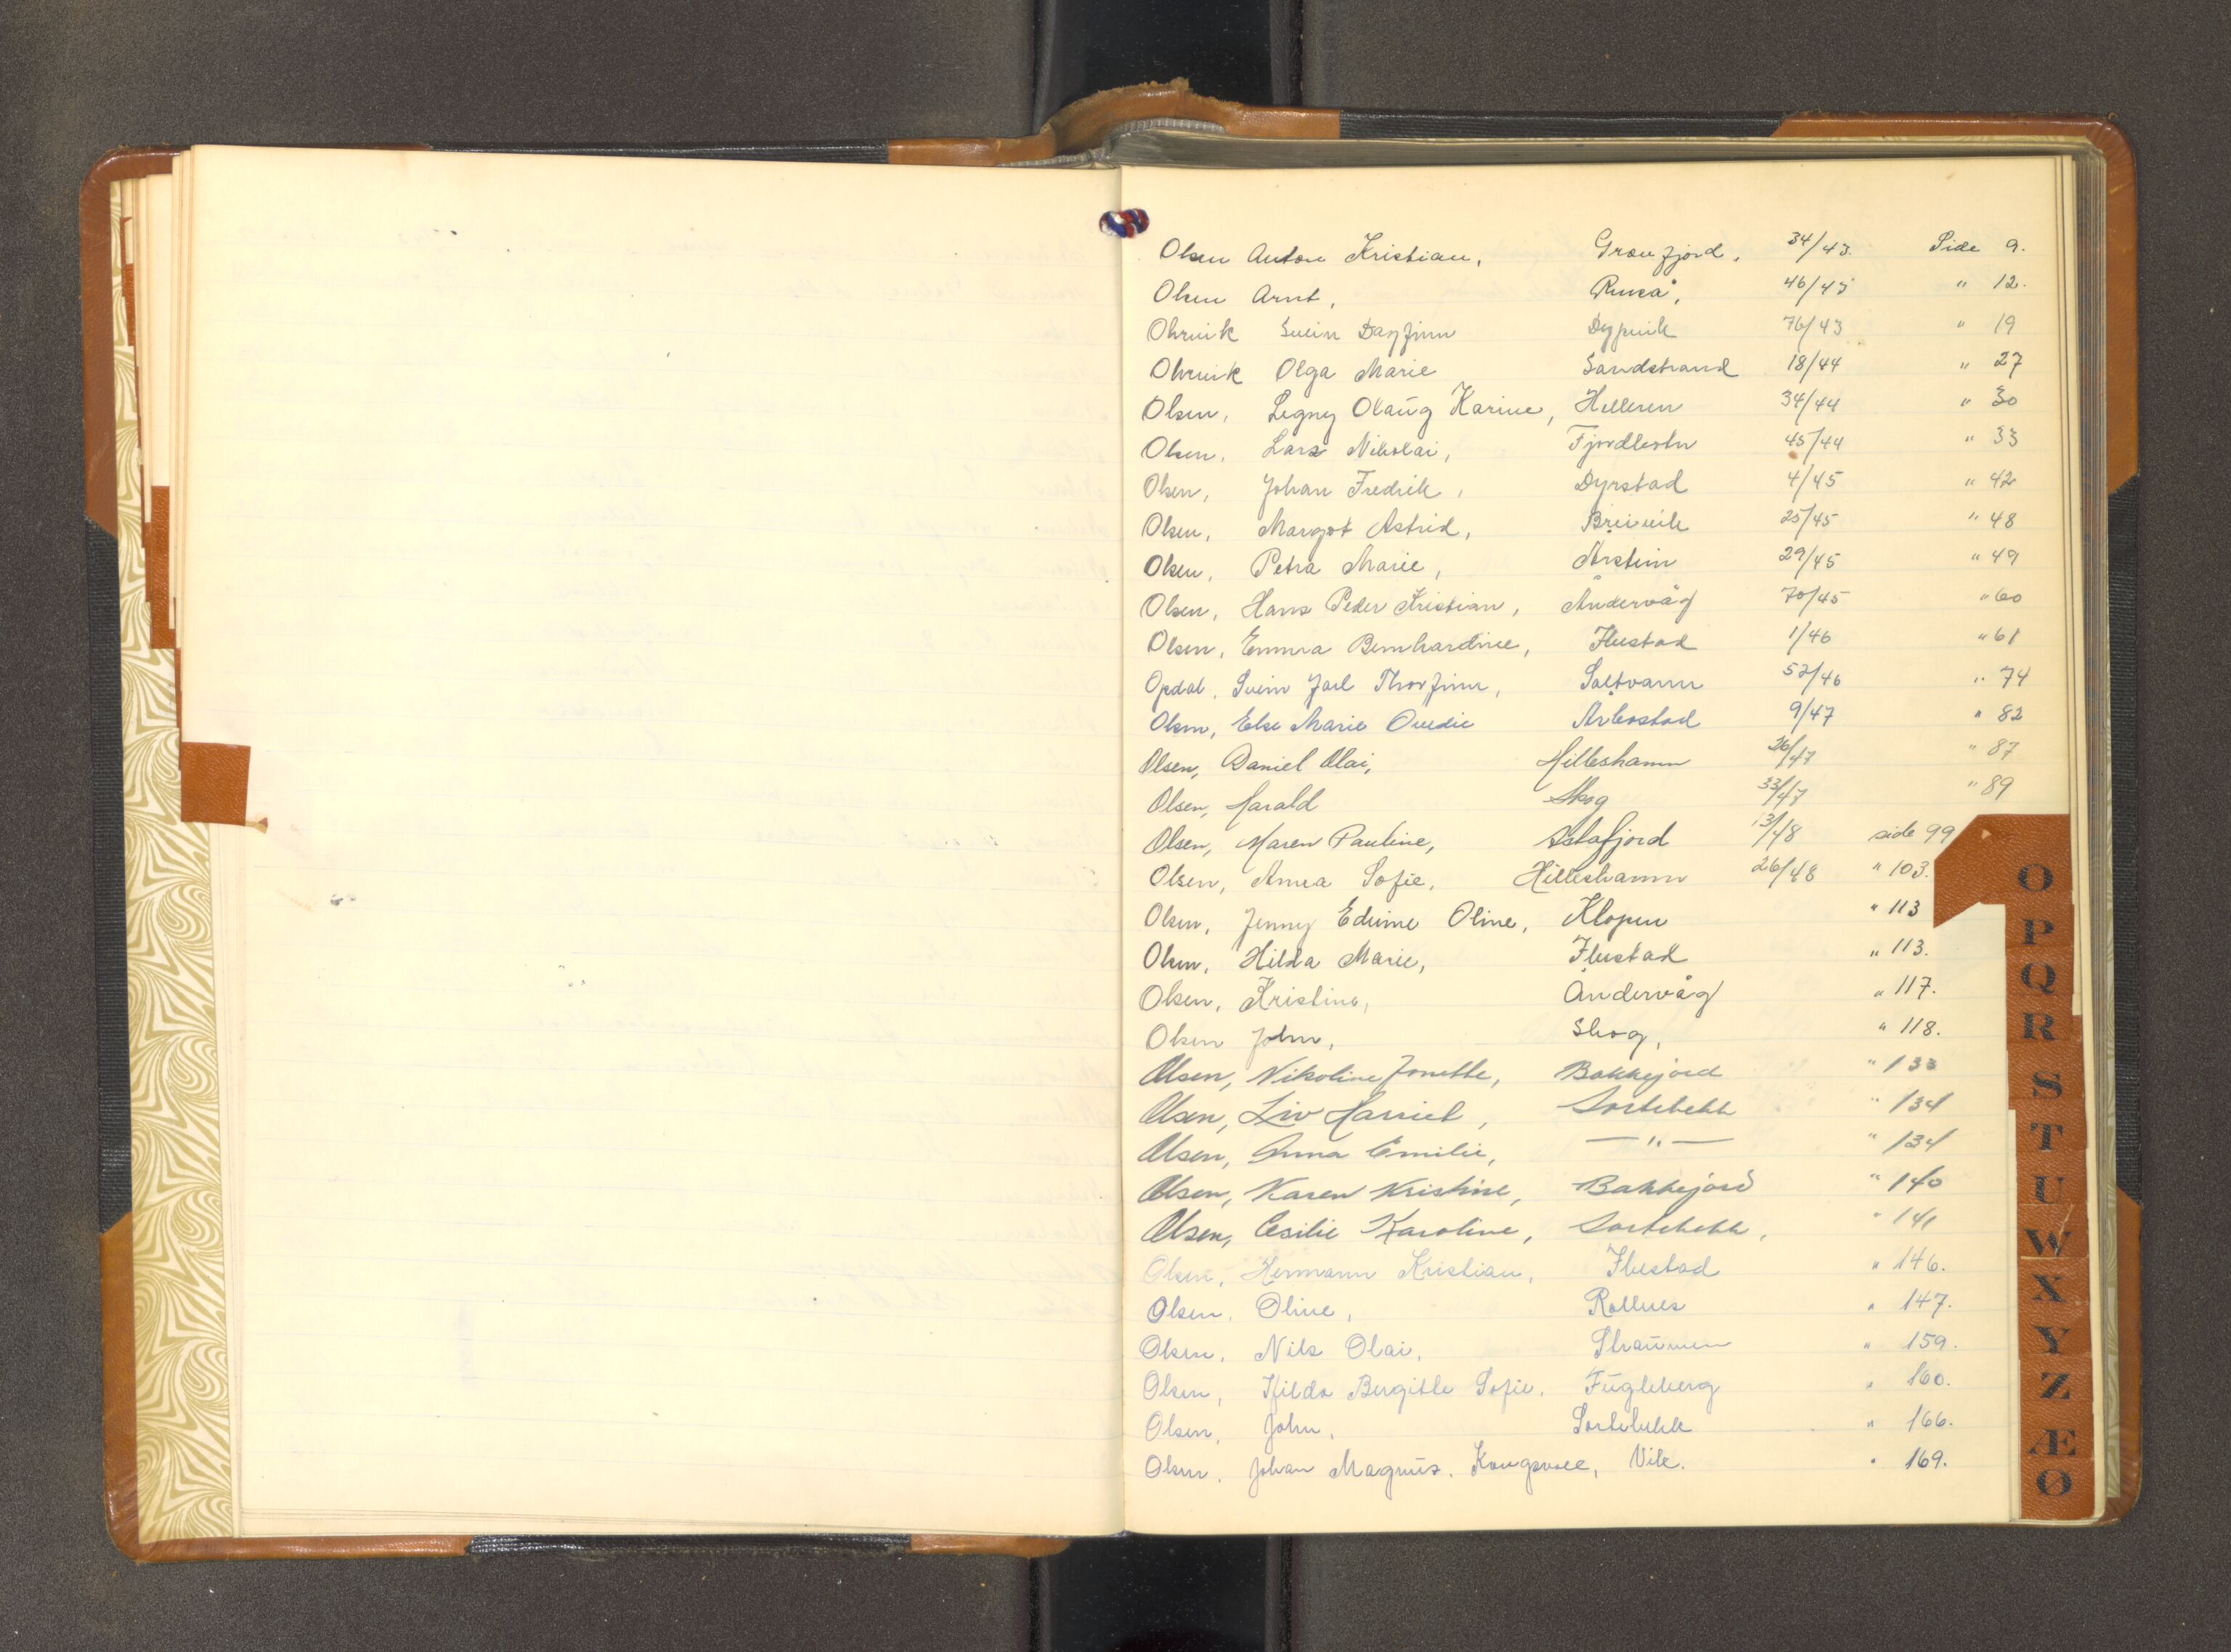 Olsen Anton Kristian, Grovfjord, 34/43. Side 9.
Olsen Arnt, 46/43 " 12.
Olsvik Svein Dagfinn Dypvik 76/43 " 19
Olsvik Olga Marie Sandstrand 18/44 " 27
Olsen, Signy Olaug Karine, Helleren 34/44 " 30
Olsen, Lars Nikolai, Fjordbotn 45/44 " 33
Olsen, Johan Fredrik, Dyrstad 4/45 " 42
Olsen, Margot Astrid, Breivik 25/45 " 48
Olsen, Petra Marie, Årstein 29/45 " 49
Olsen, Hans Peder Kristian, Åndervåg 70/45 " 60
Olsen, Emma Bernhardine, Ibestad 1/46 " 61
Opdal, Svein Jarl Thorfinn, Saltvann 52/46 " 74
Olsen, Else Marie Ovedie Arbostad 9/47 " 82
Olsen, Daniel Olai, Hilleshamn 26/47 " 87
Olsen, Harald Skog 33/47 " 89
Olsen, Maren Pauline, Astafjord 13/48 side 99
Olsen, Anna Sofie, Hilleshamn 26/48 " 103.
Olsen, Jenny Edvine Oline, Klopen " 113
Olsen, Hilda Marie, Ibestad " 113.
Olsen, Kristine, Åndervåg " 117.
Olsen John, Skog, " 118.
Olsen, Nikoline Jonette, Bakkejord " 133
Olsen, Liv Harriet, Sortebekk " 134
Olsen, Anna Emilie, — " — " 134
Olsen, Karen Kristine, Bakkejord " 140
Olsen, Cesilie Karoline, Sortebekk, " 141
Olsen, Hermann Kristian, Ibestad " 146.
Olsen, Oline, Rollnes " 147.
Olsen, Nils Olai, Straumen " 159.
Olsen, Hilda Bergitte Sofie, Fugleberg " 160.
Olsen, John, Sortebekk " 166.
Olsen, Johan Magnus. Kongsvoll, Vik. " 169.
O
P
Q
R
S
T
U
W
X
Y
Z
Æ
Ø